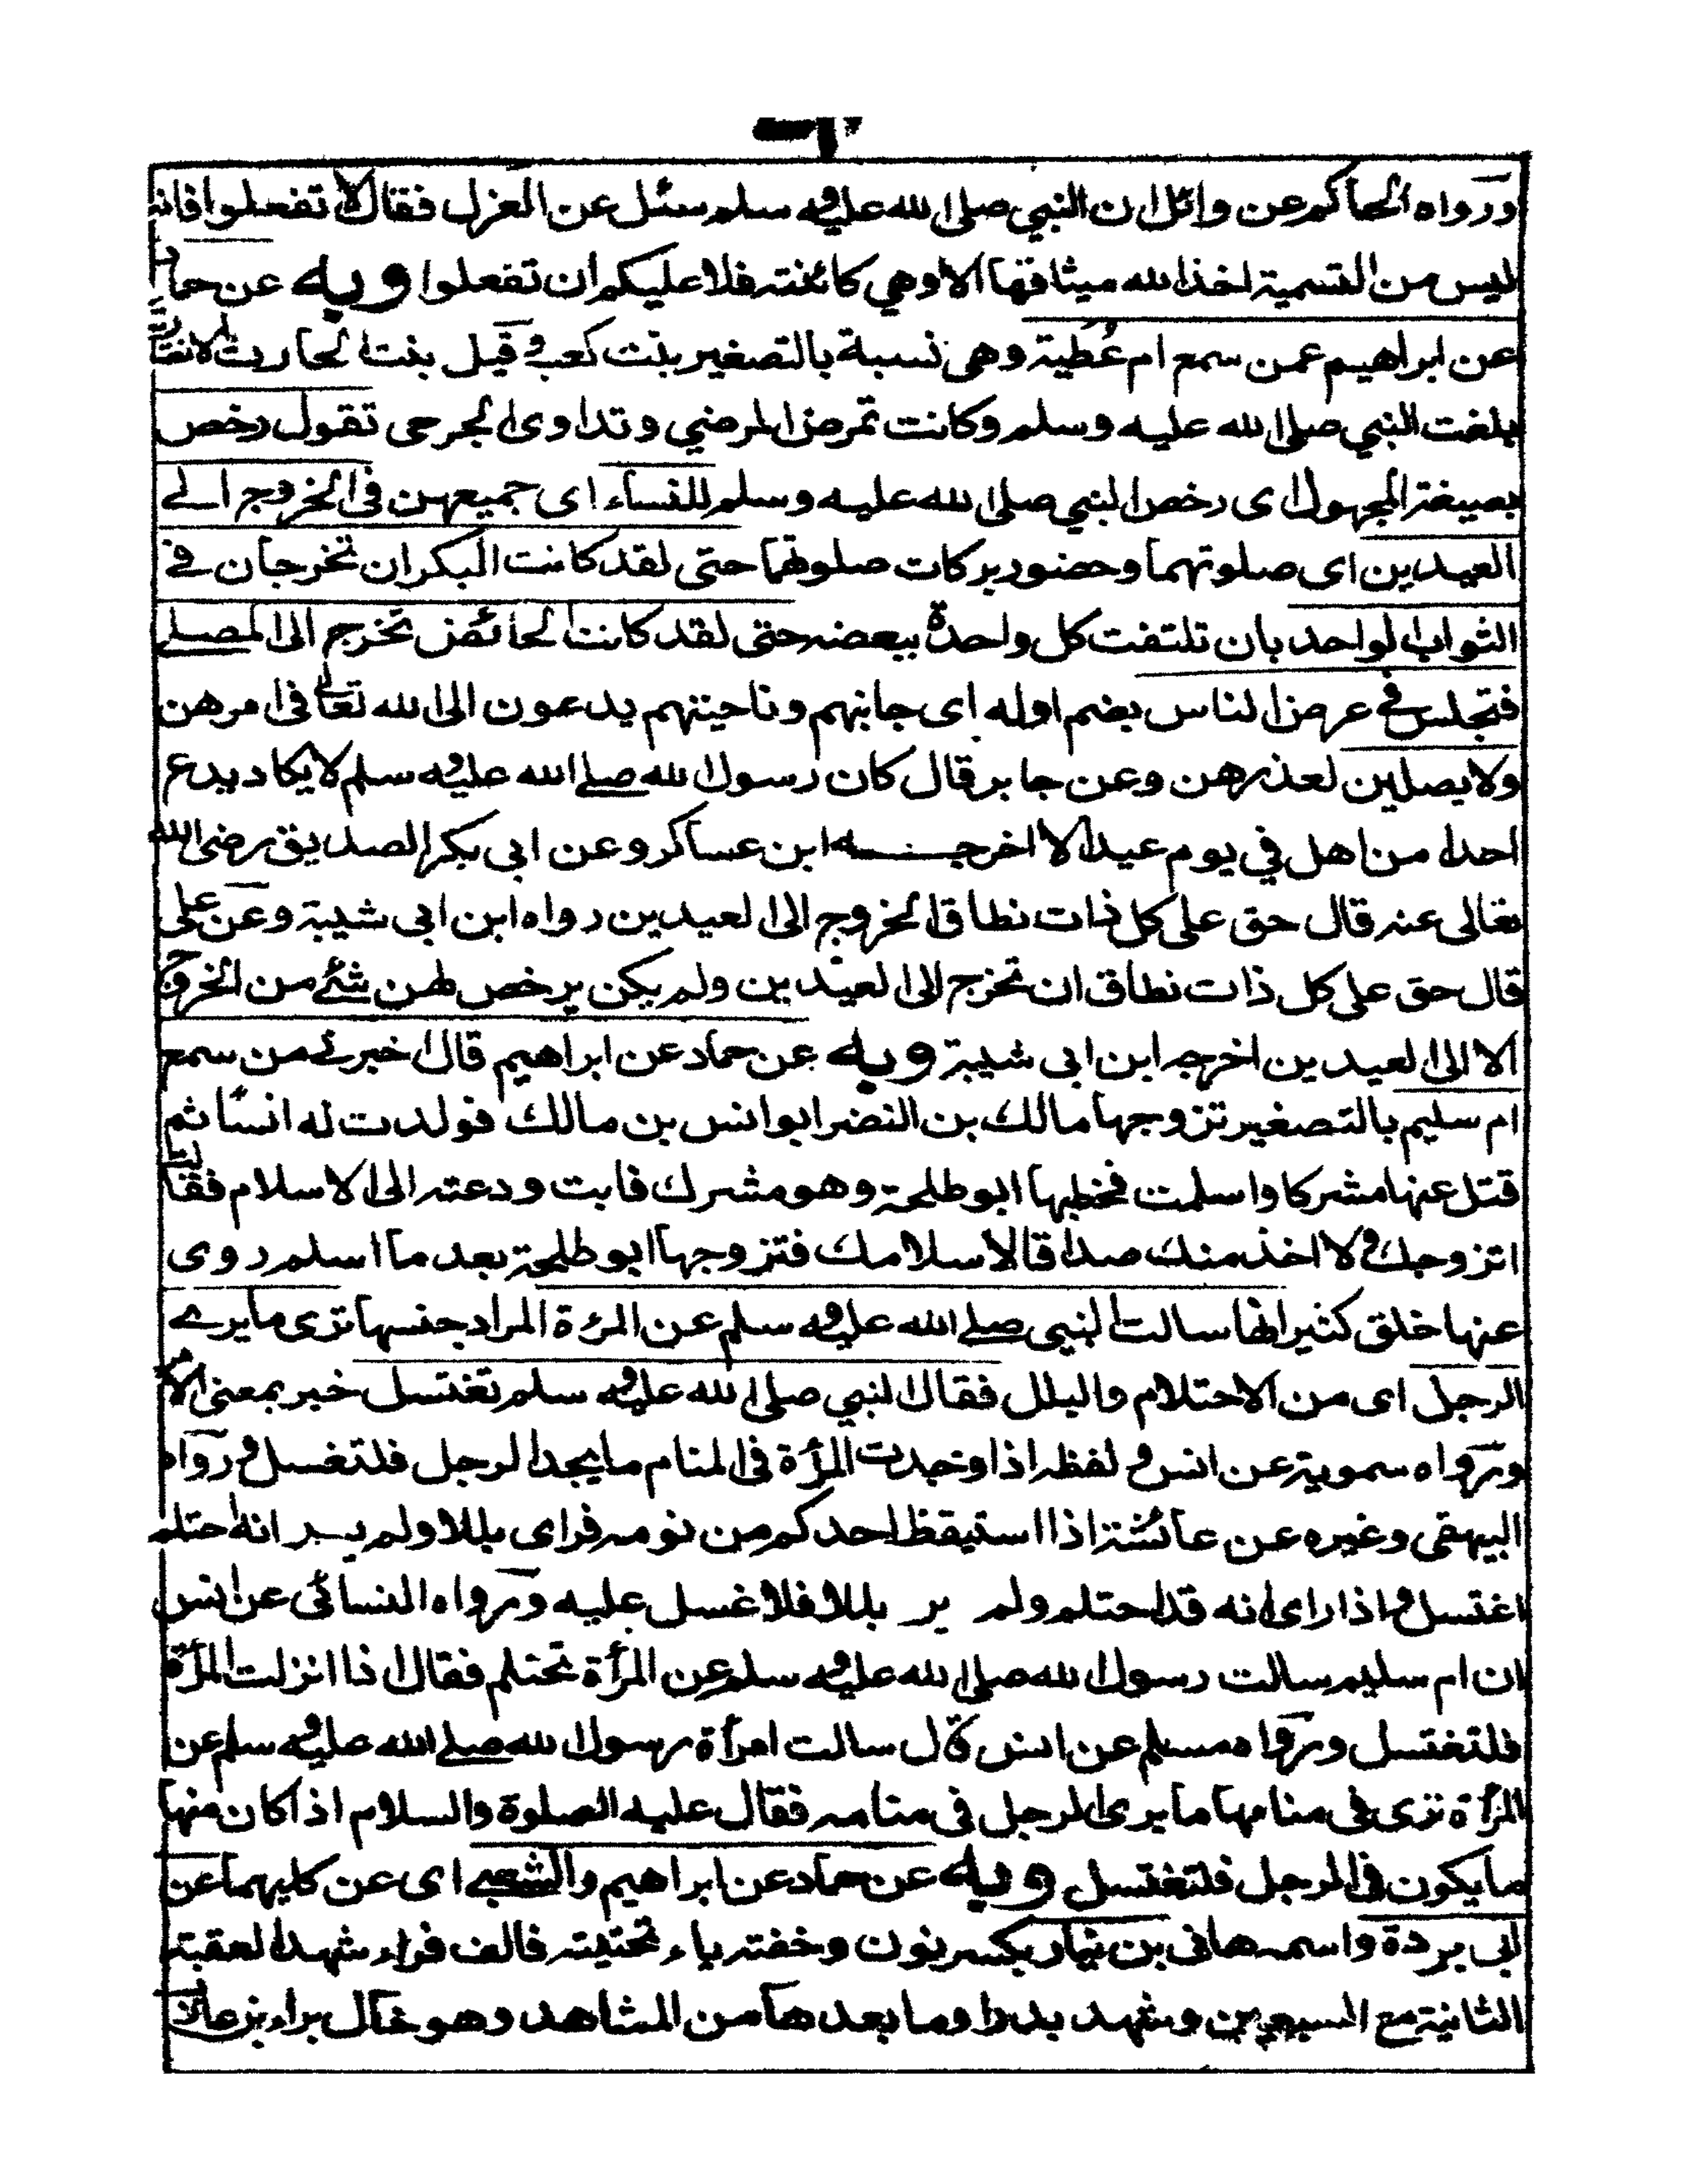 ورواه الحاكم عن واثل ان النبي صلى الله عليه وسلم سئل عن العزل فقال لا تفعلوا فانه
ليس من القسمية اخذ الله ميثاقها الا وهي كائنته فلا عليكم ان تفعلوا وبه عن حماد
عن ابراهيم عمن سمع ام عُطية وهي نسبة بالتصغير بنت كعب وقيل بنت الحارث
بلغت النبي صلى الله عليه وسلم وكانت تمرض المرضي وتداوى الجرحى تقول رخص
بصيغة المجهول اى رخص النبي صلى الله عليه وسلم للنساء اى جميعهن فى الخروج الے
العيدين اى صلوتهما وحضور بركات صلوتهما حتى لقد كانت البكران تخرجان فے
الثواب الواحد بان تلتفت كل واحدة ببعضه حتى لقد كانت الحائض تخرج الى المصلے
فتجلس فے عرض الناس بضم اوله اى جانبهم وناحيتهم يدعون الى الله تعالے فى امرهن
ولا يصلين لعذرهن وعن جابر قال كان رسول الله صلے الله عليه وسلم لا يكاد يدع
احدا من اهل في يوم عيد الا اخرجه ابن عساكر وعن ابى بكر الصديق رضى الله
تعالى عنه قال حق على كل ذات نطاق الخروج الى العيدين رواه ابن ابى شيبة وعن على
قال حق على كل ذات نطاق ان تخرج الى العيدين ولم يكن يرخص لهن شئے من الخروج
الا الى العيدين اخرجه ابن ابى شيبة وبه عن حماد عن ابراهيم قال اخبرنے من سمع
ام سليم بالتصغير تزوجها مالك بن النضر ابو انس بن مالك فولدت له انسًا ثم
قتل عنها مشركا واسلمت فخطبها ابو طلحة وهو مشرك فابت ودعته الى الاسلام فقالت
اتزوجك ولا اخذ منك صداقا الا سلامك فتزوجها ابو طلحة بعد ما اسلم روى
عنها خلق كثير انها سالت النبى صلے الله عليه وسلم عن المرءة المراد جنسها ترى ما يرے
الرجل اى من الاحتلام والبلل فقال النبي صلى الله عليه وسلم تغتسل خبر بمعنى الامر
ورواه سموية عن انس و لفظه اذا وجدت المرأة فى المنام ما يجد الرجل فلتغسل و رواه
البيهقى وغيره عن عائشة اذا استيقظ احدكم من نومه فراى بللا ولم ير انه احتلم
اغتسل و اذا راى انه قد احتلم ولم ير بللا فلا غسل عليه ورواه النسائى عن انس
ان ام سليم سالت رسول الله صلى الله عليه وسلم عن المرأة تحتلم فقال اذا انزلت المرأة
فلتغتسل ورواه مسلم عن انس قال سالت امرأة رسول الله صلے الله عليه وسلم عن
المرأة ترى فى منامها ما يرى الرجل فى منامه فقال عليه الصلوة والسلام اذا كان منها
ما يكون فى الرجل فلتغتسل وبه عن حماد عن ابراهيم والشعبے اى عن كليهما عن
ابى بردة واسمه هانى بن نيار بكسر نون وخفته ياء تحتيته فالف فراء شهد العقبة
الثانية مع السبعين وشهد بدرا وما بعدها من المشاهد وهو خال براء بن عازب